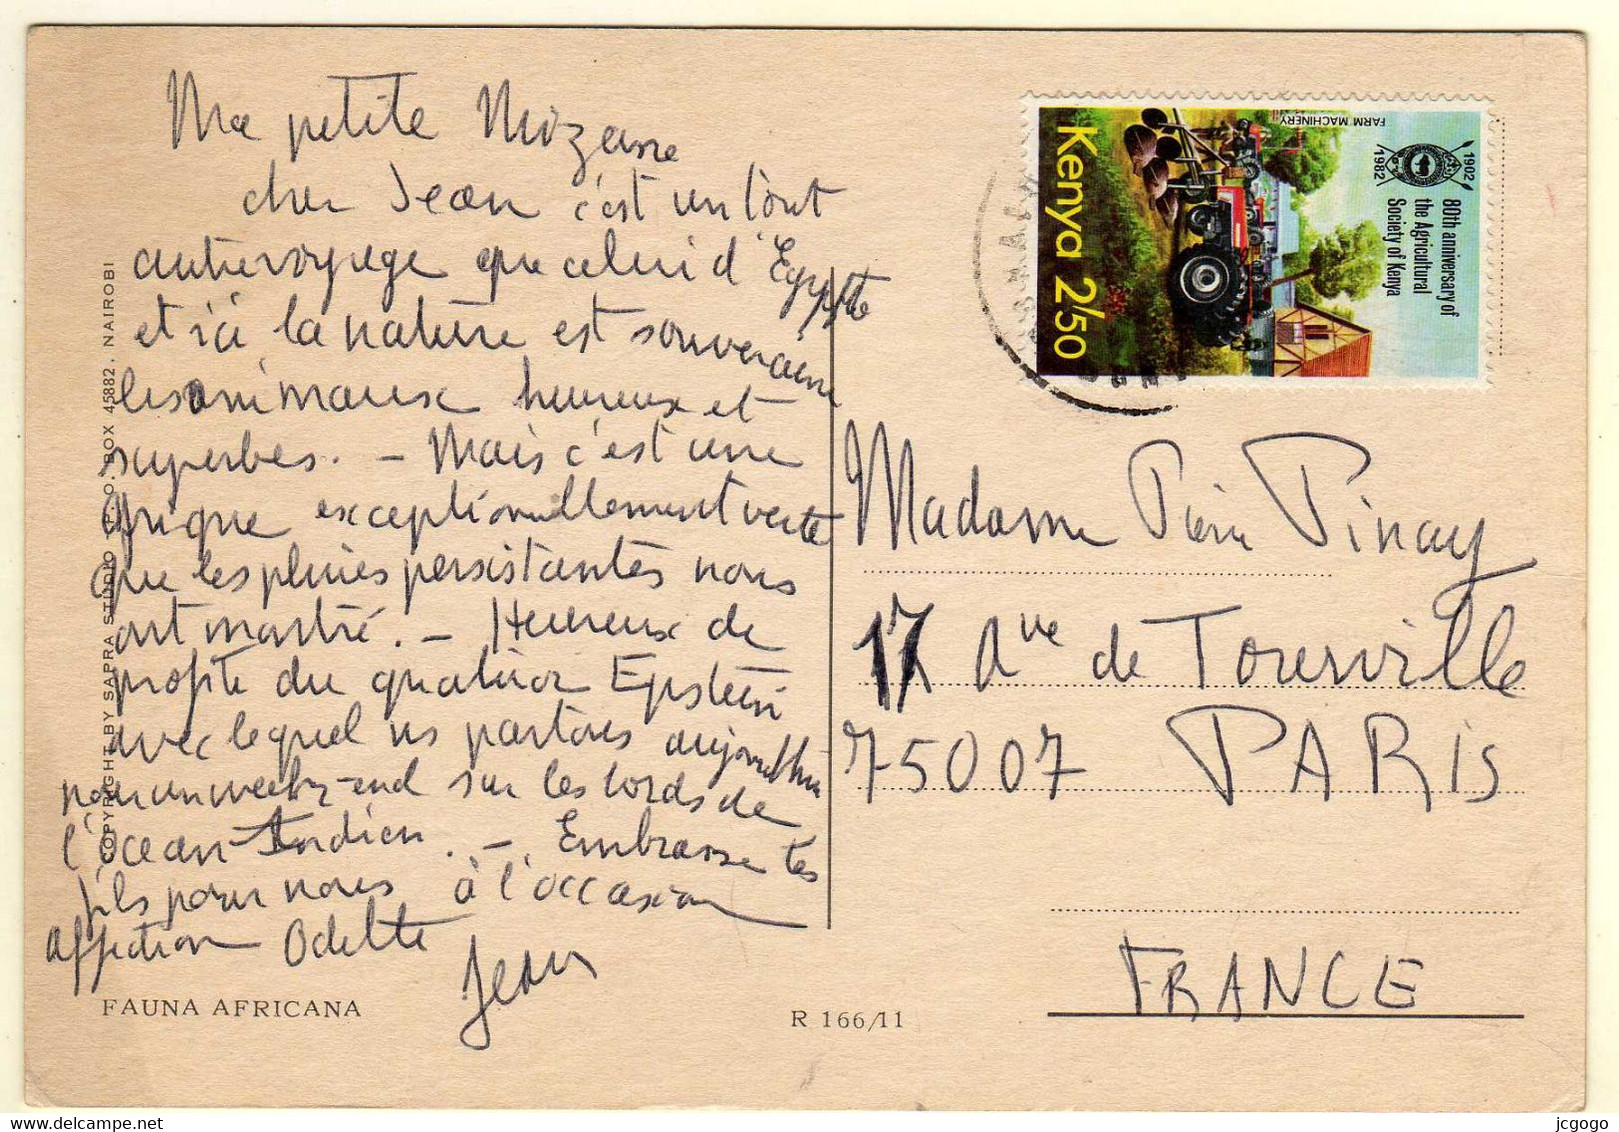 Ma petite
cher Jean c'est un tout
autre voyage que celui d'Egypte
et ici la nature est souveraine
les animaux heureux et
superbes. – Mais c'est une
Afrique exceptionnellement verte
que les pluies persistantes nous
ont montré. – Heureux de
profite du quatuor Epstein
avec lequel ns partons aujourd'hui
pour un week-end sur les bords de
l'Ocean Indien. – Embrasse tes
fils pour nous à l'occasion
affection Odette
Jean
FAUNA AFRICANA
R 166/11
COPYRIGHT BY SAPRA STUDIO P. O. BOX 45882. NAIROBI
Kenya 2/50
FARM MACHINERY
1902
1982
80th anniversary of
the Agricultural
Society of Kenya
Madame Pierre Pinay
17 Ave de Tourville
75007 PARIS
FRANCE
jcgogo